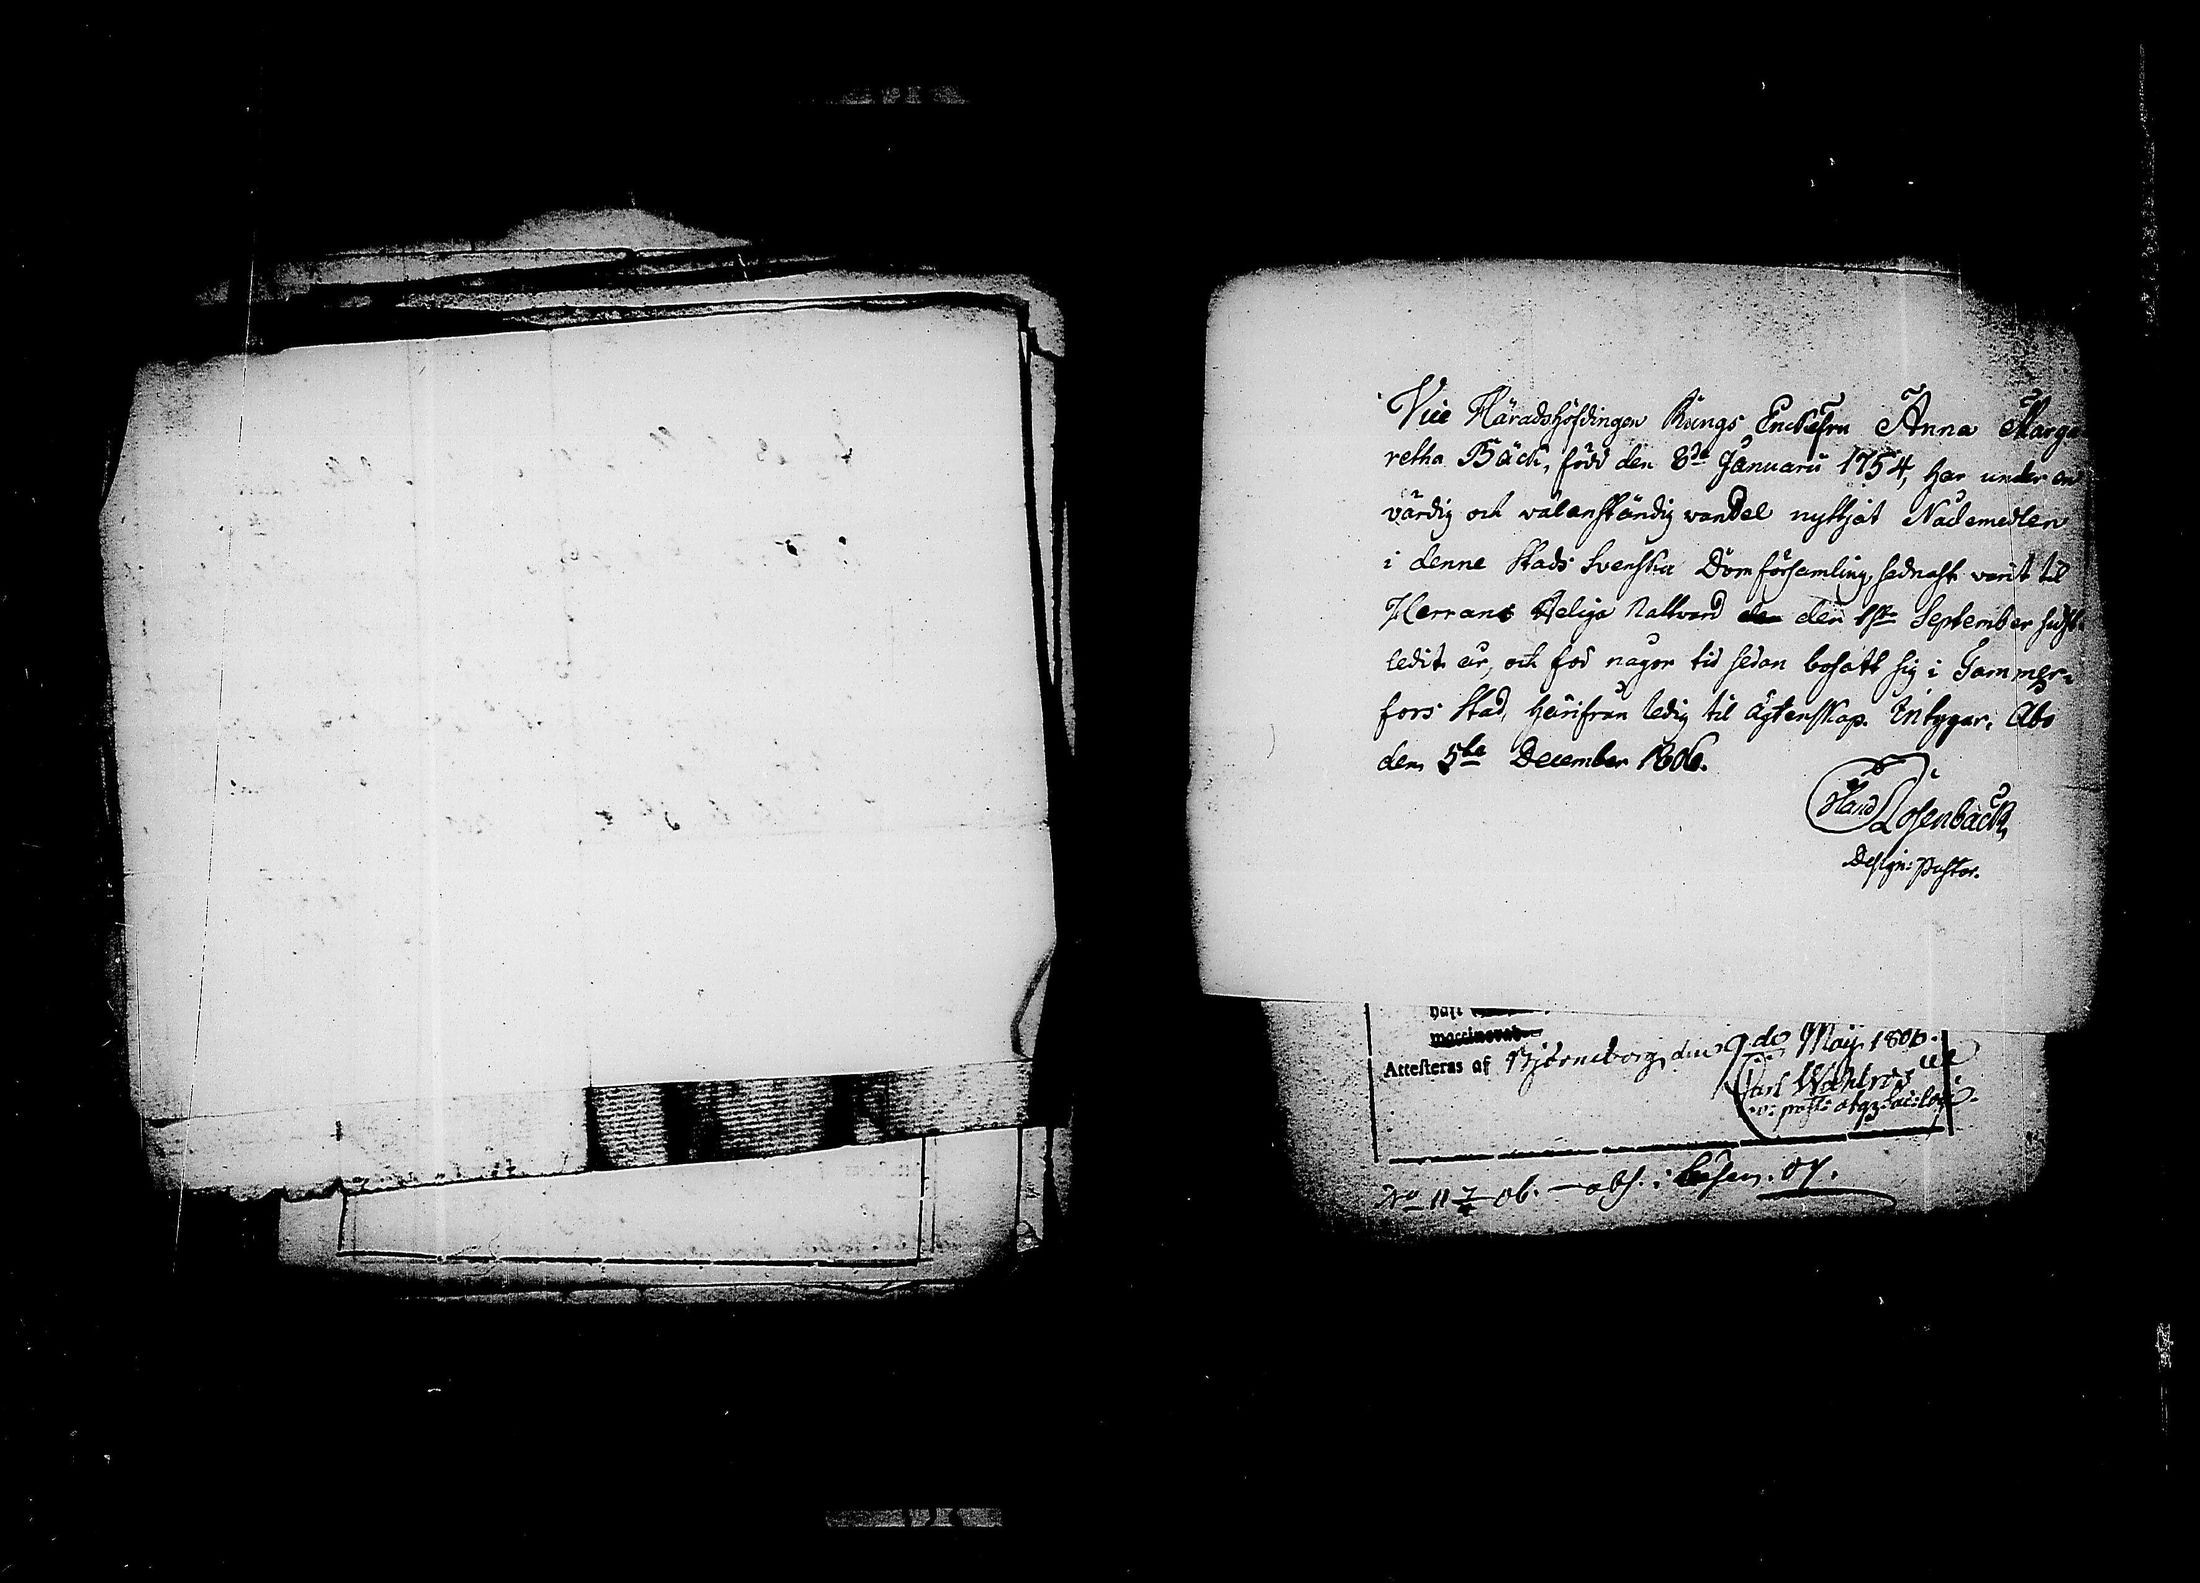 Vice Häradshöfdingen Kungs Enckefru Anna Marga
retha Bäck, född den 8de Januarii 1754, har under en
värdig och välanständig wandel nyttjat Nådemedlen
i denne Stads Svenska Domförsamling, sednast varit til
Herrans Heliga Nattvard den 1ste September sidst-
ledit år, och för någor tid sedan bosatt sig i Tammer-
fors Stad, härifrån ledig til ägtenskap. Intygar. Åbo
den 5te December 1806.
Rosenback,
Design: Pastor.
haft
Attesteras af Björneborg den 9de Maij 1806.
Carl Wahlroos
No 11 7/4 06. — abs.: 07.